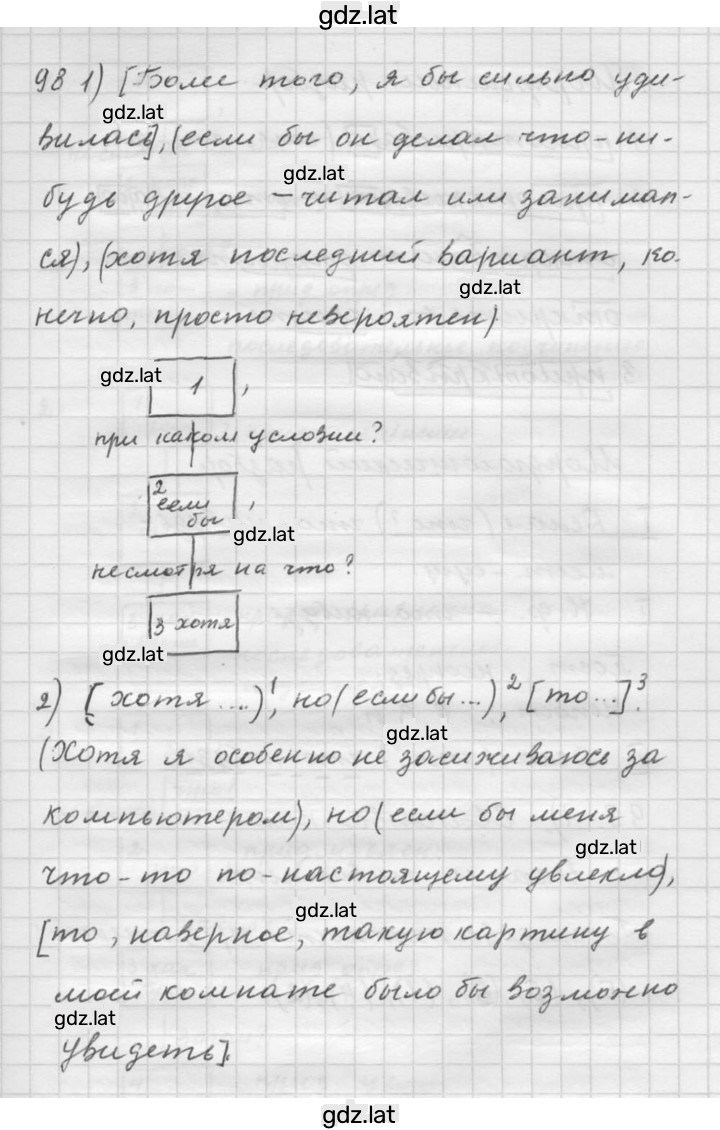 gdz.lat
98 1) [Более того, я бы сильно уди-
gdz.lat
вилась], (если бы он делал что-ни-
gdz.lat
будь другое – читал или занимал-
ся), (хотя последний вариант, ко-
gdz.lat
нечно, просто невероятен)
gdz.lat
1 ,
при каком условии?
2
если бы ,
gdz.lat
несмотря на что?
3 хотя
gdz.lat
2) ( хотя ...)¹, но (если бы ...)², [то...]³.
gdz.lat
(Хотя я особенно не засиживаюсь за
компьютером), но (если бы меня
gdz.lat
что-то по-настоящему увлекло),
gdz.lat
[то, наверное, такую картину в
моей комнате было бы возможно
gdz.lat
увидеть].
gdz.lat